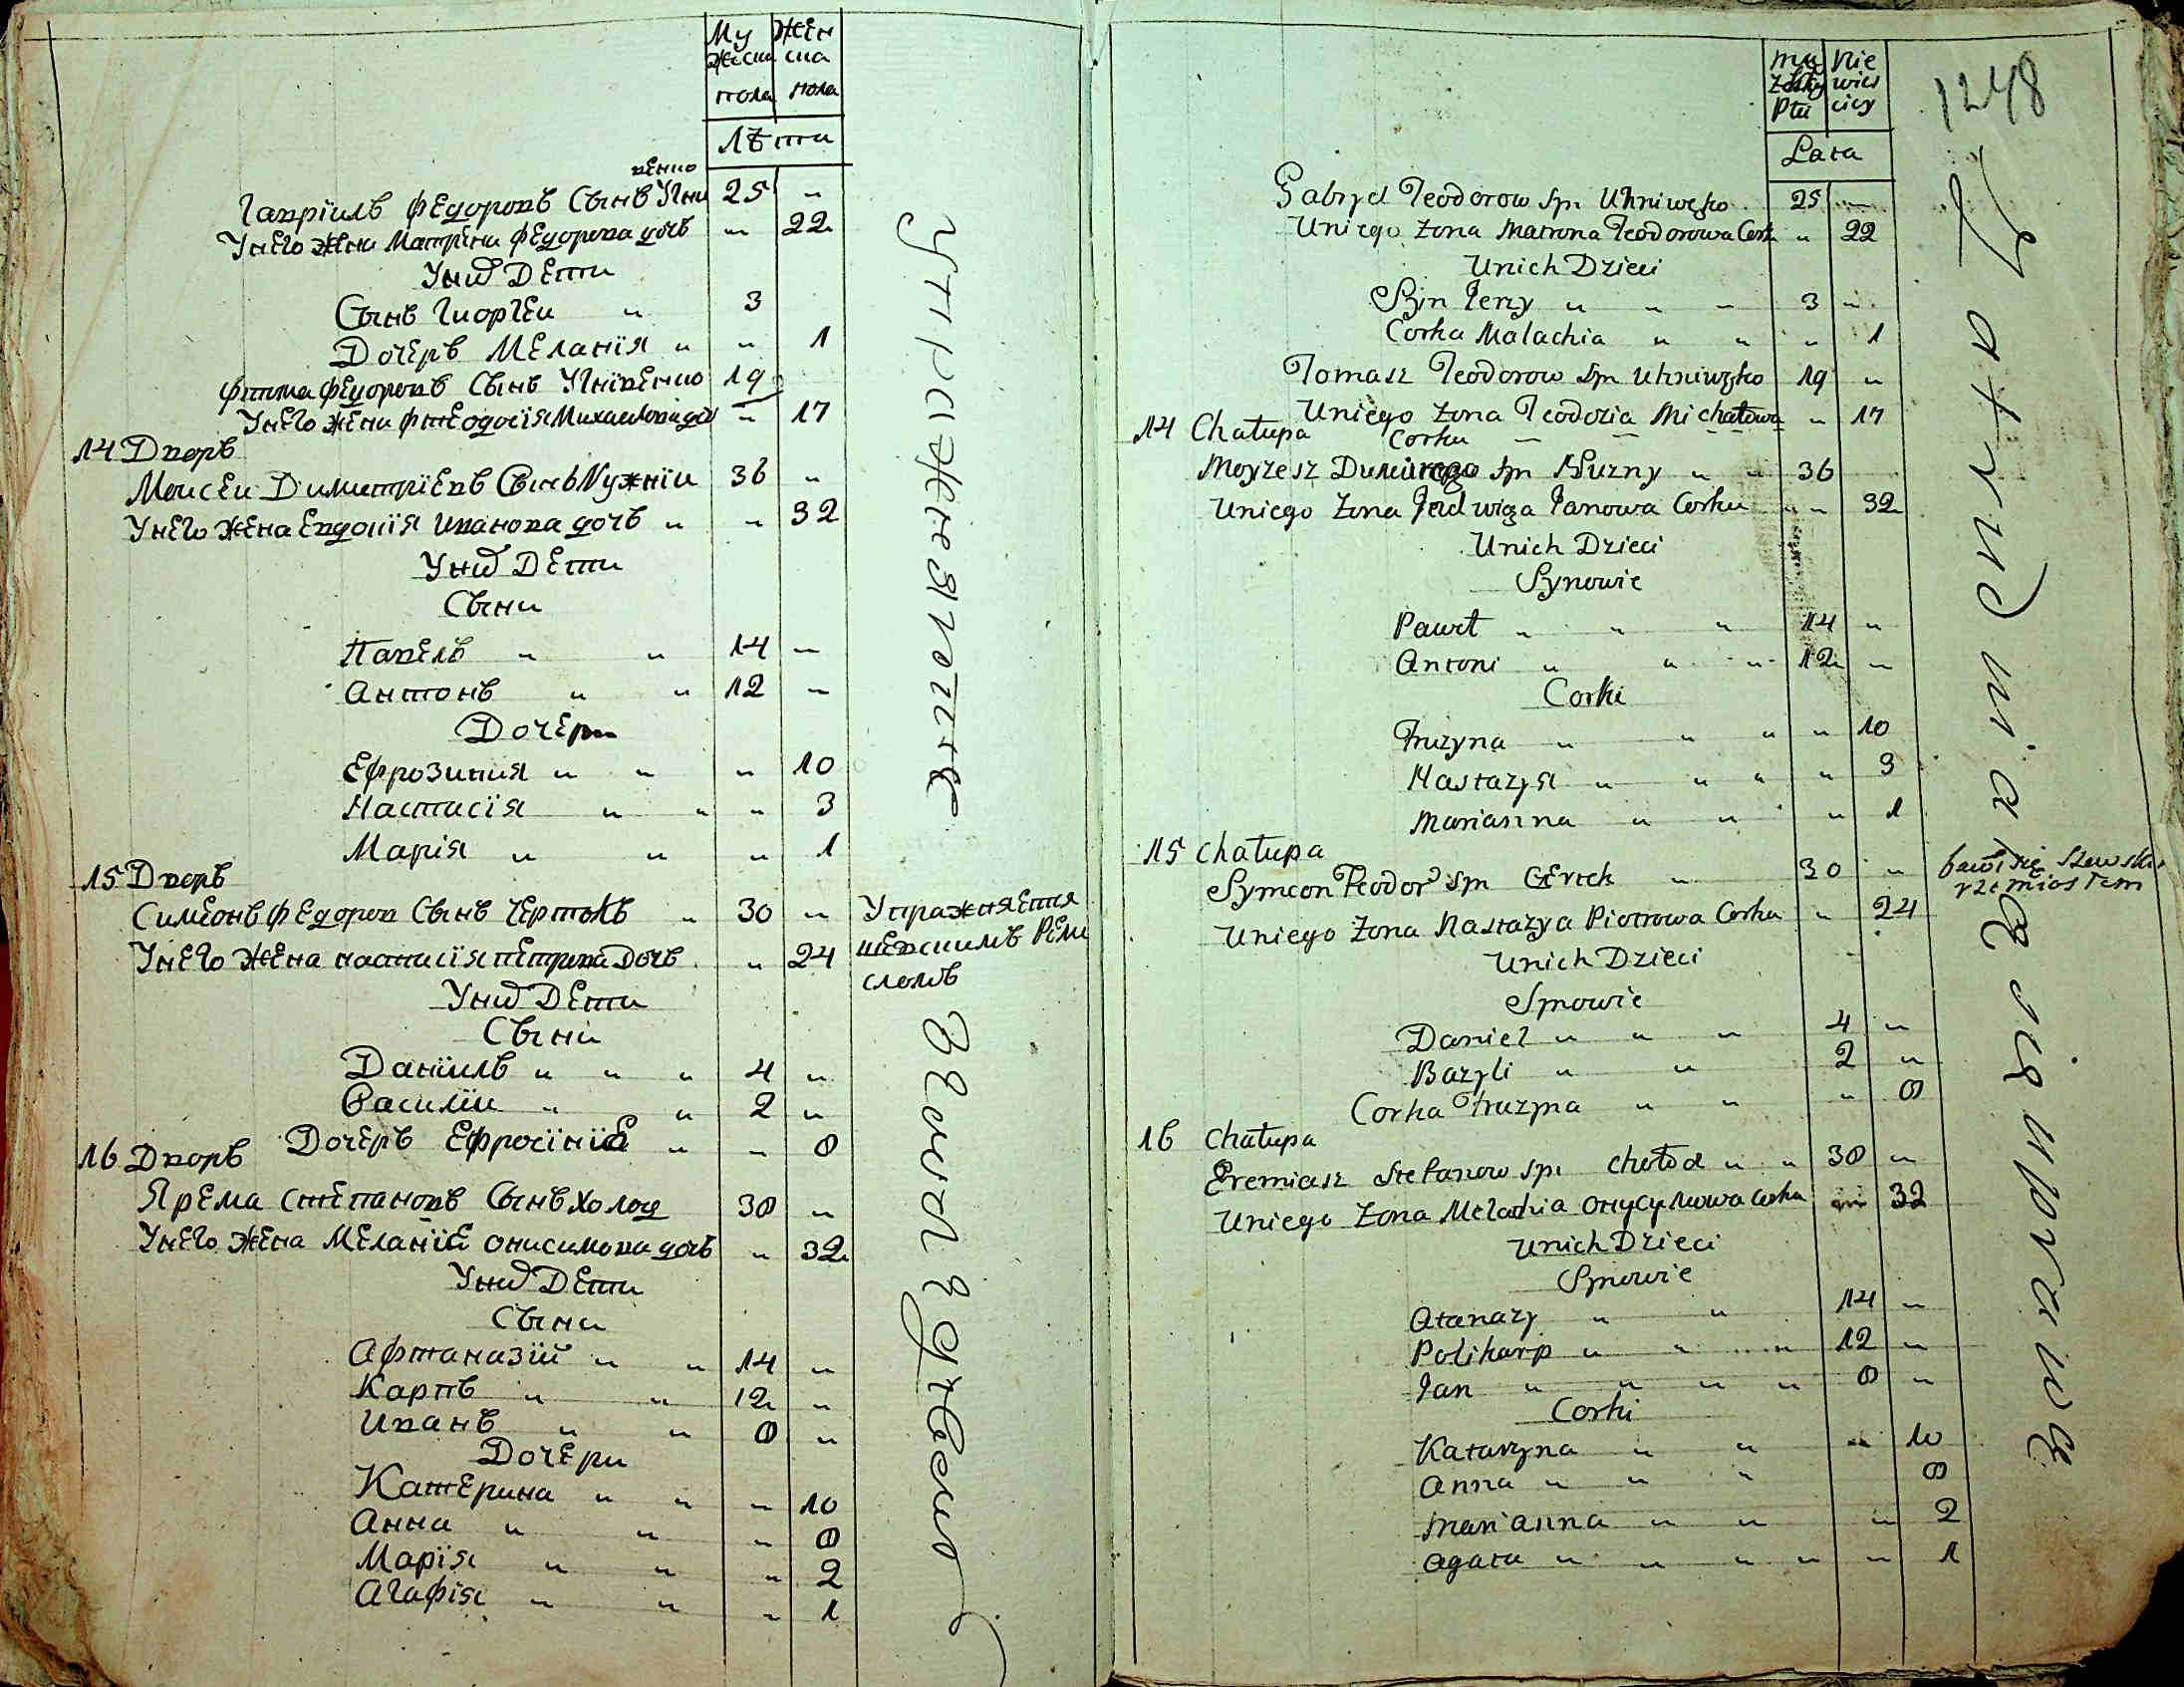 Му Жен
жеска ска
пола пола
Лѣта
венко
Гавріилъ Федоровъ Сынъ Угни 25 "
Унего жена Матрена Федорова дочъ " 22
Уних Дети
Сынъ Гиоргеи " 3
Дочеръ Меланія " " 1
Фтома Федоровъ Сынъ Угнівенко 19
Унего жена Фтеодосія Михаилова до " 17
14 Дворъ
Моисеи Димитріевъ Сынъ Нужніи 36 "
Унего жена Евдокія Иванова дочъ " " 32
Уних Дети
Сыни
Павелъ " " 14 "
Антонъ " " 12 "
Дочери
Ефрозиния " " " 10
Настасія " " " 3
Марія " " " 1
15 Дворъ
Симеонъ Федоров Сынъ Чертокъ " 30 "
Унего Жена настасія петрова Дочъ " 24
Уних Дети
Сыни
Даніилъ " " " 4 "
Василіи " " 2 "
Дочеръ Ефросініа " " 8
16 Дворъ
Ярема степановъ Сынъ Холод 38 "
Унего Жена Меланіа онисимова дочъ " 32
Уних Дети
Сыни
Афтаназій " " 14 "
Карпъ " " 12 "
Иванъ " " 8 "
Дочери
Катерина " " " 10
Анна " " " 8
Марія " " " 2
Агафія " " " 1
Упражняются
Упражняется
шевскимъ Реме
сломъ
1248
mę Nie
zkiey wies
Płci ciey
Lata
Gabryel Teodorow Syn Uhniwęko 25 "
Uniego Zona Matrona Teodorowa Cork " 22
Unich Dzieci
Syn Jerzy " " " 3 "
Corka Malachia " " " 1
Tomasz Teodorow Syn Uhniwęko 19 "
Uniego Zona Teodozia Michałowa " 17
14 Chałupa Corka
Moyzesz Syn Nuzny " " 36
Uniego Zona Jadwiga Janowa Corka " " 32
Unich Dzieci
Synowie
Paweł " " " 14 "
Antoni " " " 12 "
Corki
Fruzyna " " " " 10
Nastazya " " " " 3
Marianna " " " 1
15 Chałupa
Symeon Teodor Syn Czertok " 30 "
bawi się Szewskim
rzemiosłem
Uniego Zona Nastazya Piotrowa Corka " 24
Unich Dzieci
Synowie
Daniel " " " 4 "
Bazyli " " 2 "
Corka Fruzyna " " " 8
16 Chałupa
Eremiasz Stefanow Syn Chołod " " 38 "
Uniego Zona Melachia Onycymowa Corka " 32
Unich Dzieci
Synowie
Atanazy " " 14 "
Polikarp " " " 12 "
Jan " " " " 8 "
Corki
Katarzyna " " " 10
Anna " " " 8
Marianna " " " 2
Agata " " " " " 1